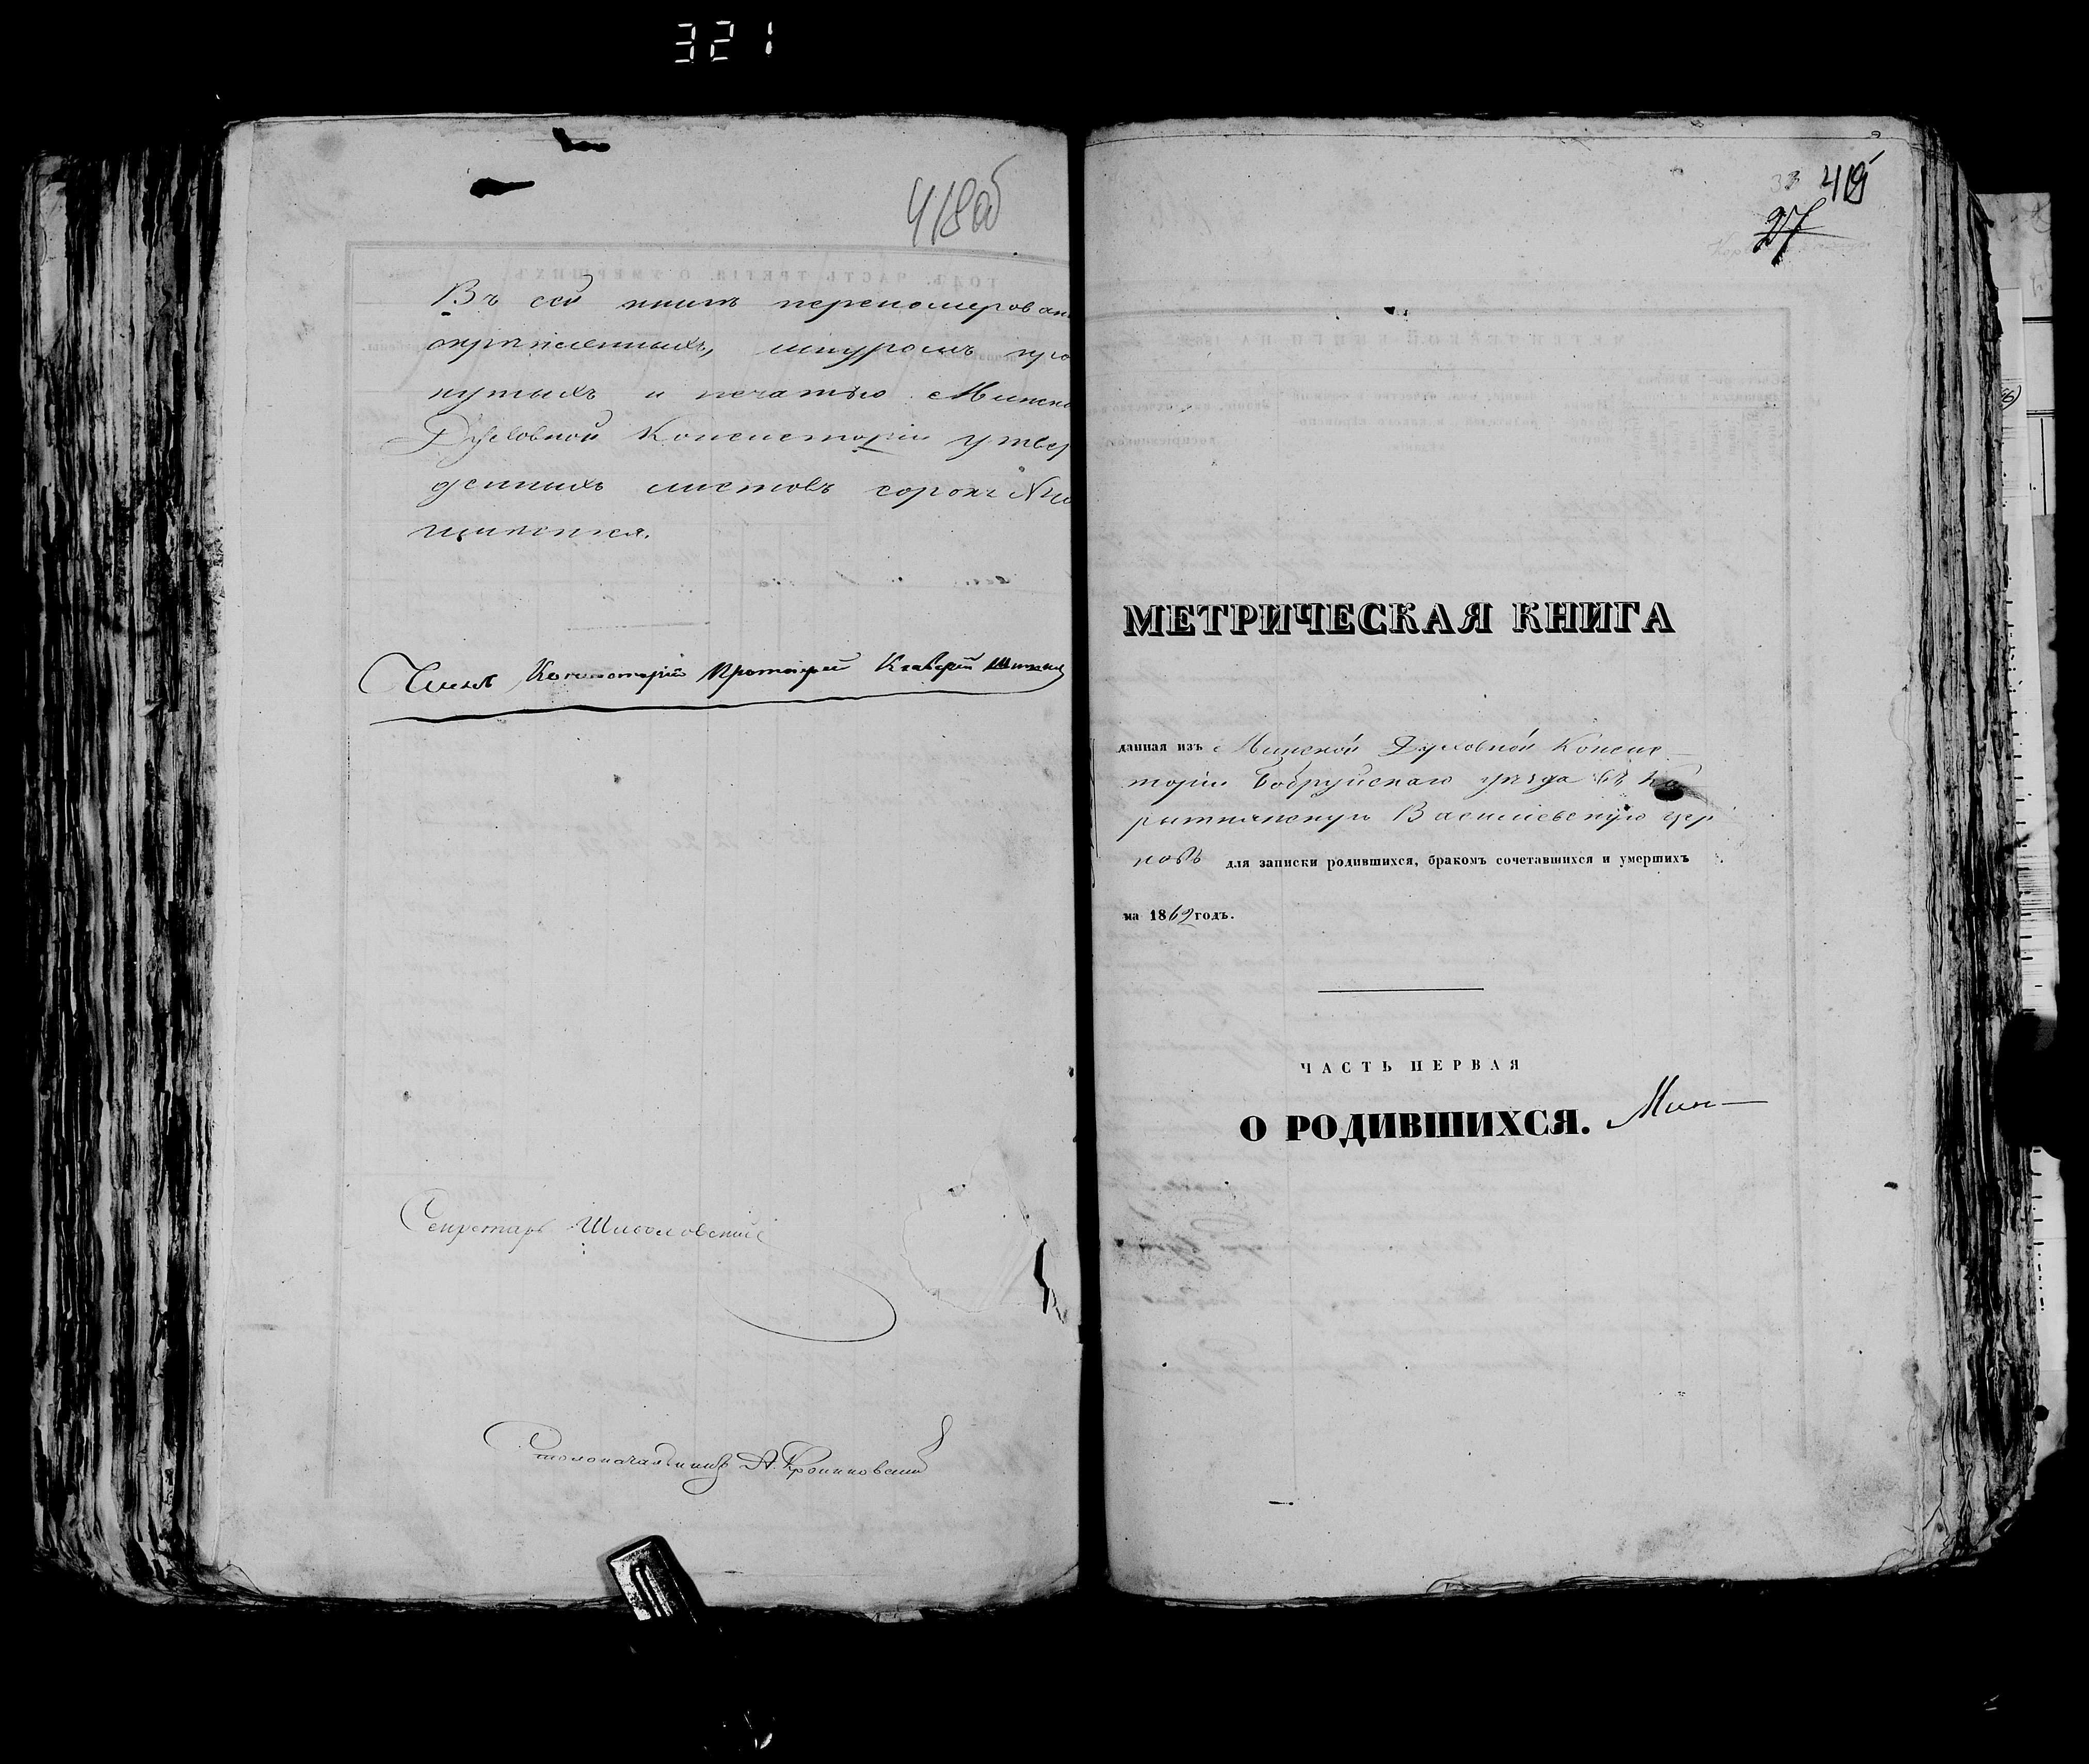 321
418об
Въ сей книгѣ перенумерован
скрѣпленныхъ, шнуромъ про
нутыхъ и печатью Минско
Духовной Консисторіи утвер
жденныхъ листовъ сорокъ
Членъ Консисторіи Протоіерей
Секретарь
Столоначальникъ А.
419
27
МЕТРИЧЕСКАЯ КНИГА
данная изъ Минской Духовной Консис-
торіи Бобруйскаго уѣзда въ Ко
рытнянскую Васильевскую цер
ковь для записки родившихся, бракомъ сочетавшихся и умершихъ
на 1862 годъ.
ЧАСТЬ ПЕРВАЯ
О РОДИВШИХСЯ. Мин-